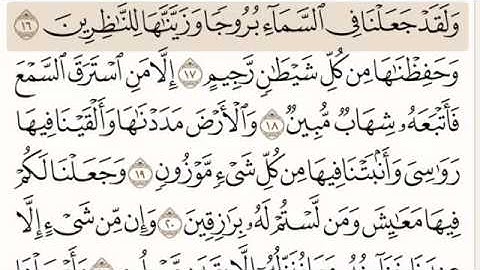 وَلَقَدْ جَعَلْنَا فِي السَّمَاءِ بُرُوجًا وَزَيَّنَّاهَا لِلنَّاظِرِينَ ١٦
وَحَفِظْنَاهَا مِن كُلِّ شَيْطَانٍ رَّجِيمٍ ١٧ إِلَّا مَنِ اسْتَرَقَ السَّمْعَ
فَأَتْبَعَهُ شِهَابٌ مُّبِينٌ ١٨ وَالْأَرْضَ مَدَدْنَاهَا وَأَلْقَيْنَا فِيهَا
رَوَاسِيَ وَأَنبَتْنَا فِيهَا مِن كُلِّ شَيْءٍ مَّوْزُونٍ ١٩ وَجَعَلْنَا لَكُمْ
فِيهَا مَعَايِشَ وَمَن لَّسْتُمْ لَهُ بِرَازِقِينَ ٢٠ وَإِن مِّن شَيْءٍ إِلَّا